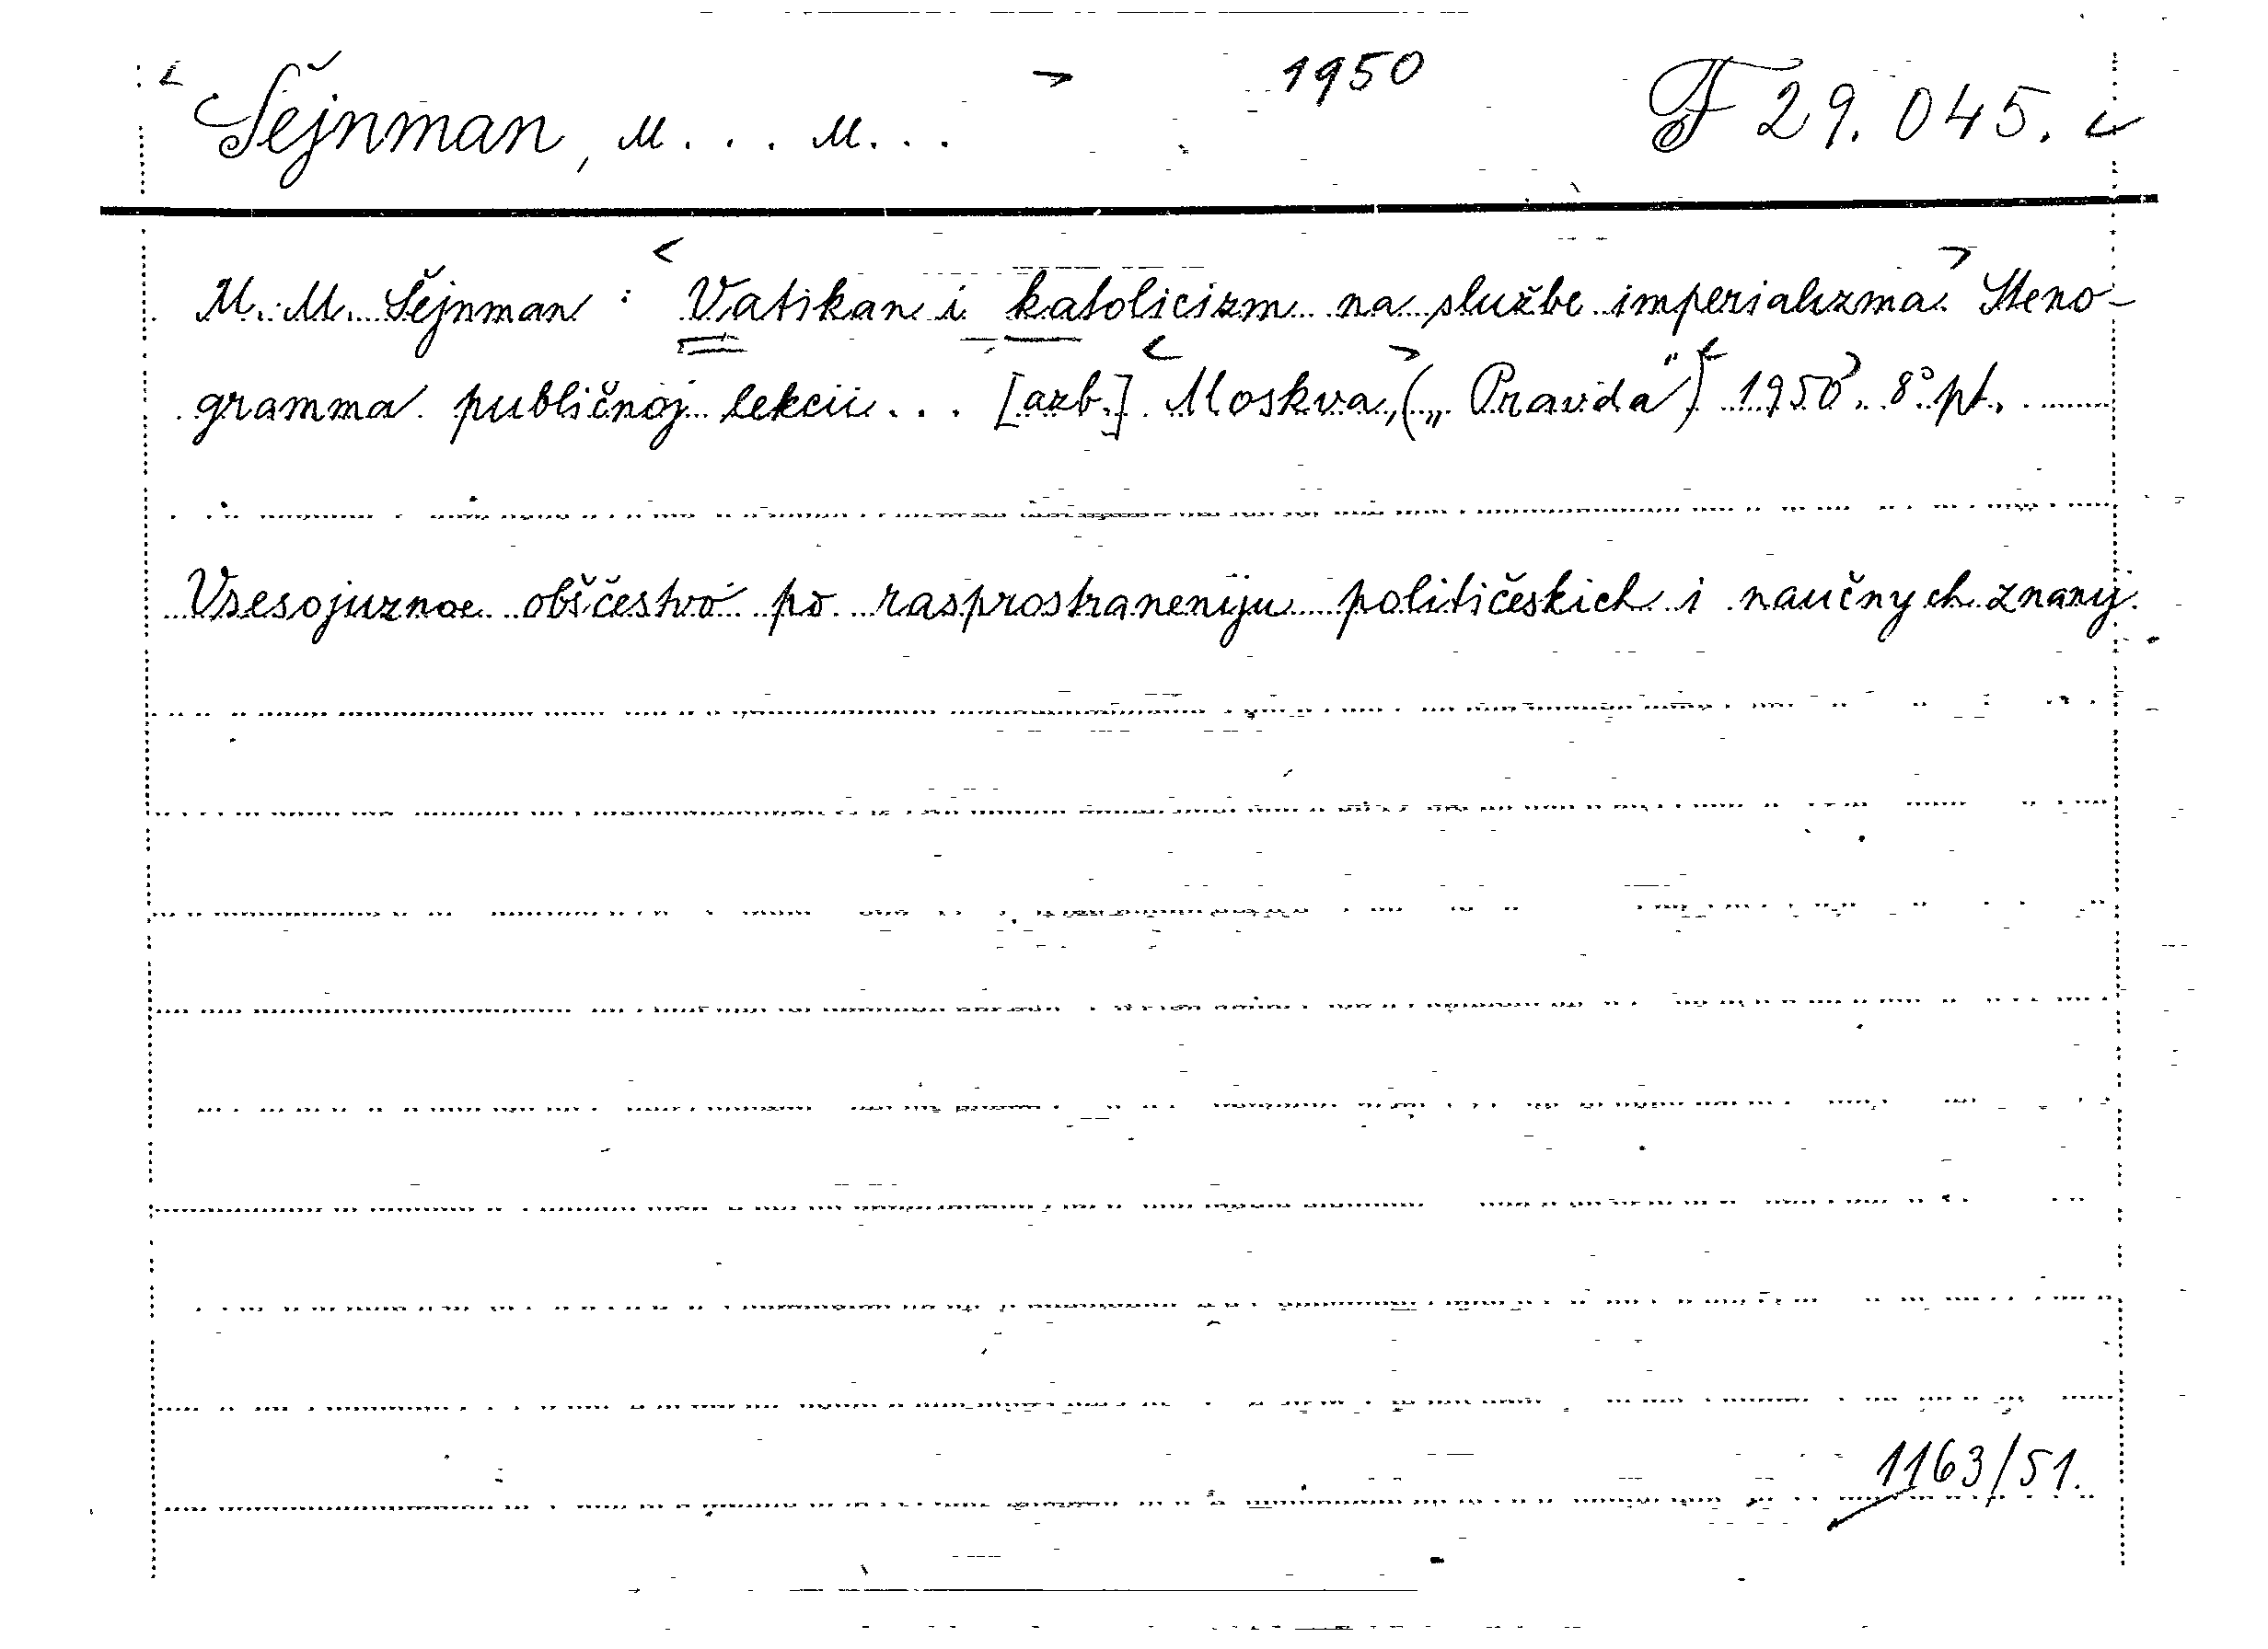 Šejnman, M... M... 1950 F 29.045.
M. M. Šejnman : Vatikan i katolicizm na službe imperializma. Steno-
gramma publičnoj lekcii... [azb.] Moskva, („Pravda“) 1950. 8° pt.
Vsesojuznoe obščestvo po rasprostraneniju političeskich i naučnych znanij.
1163/51.